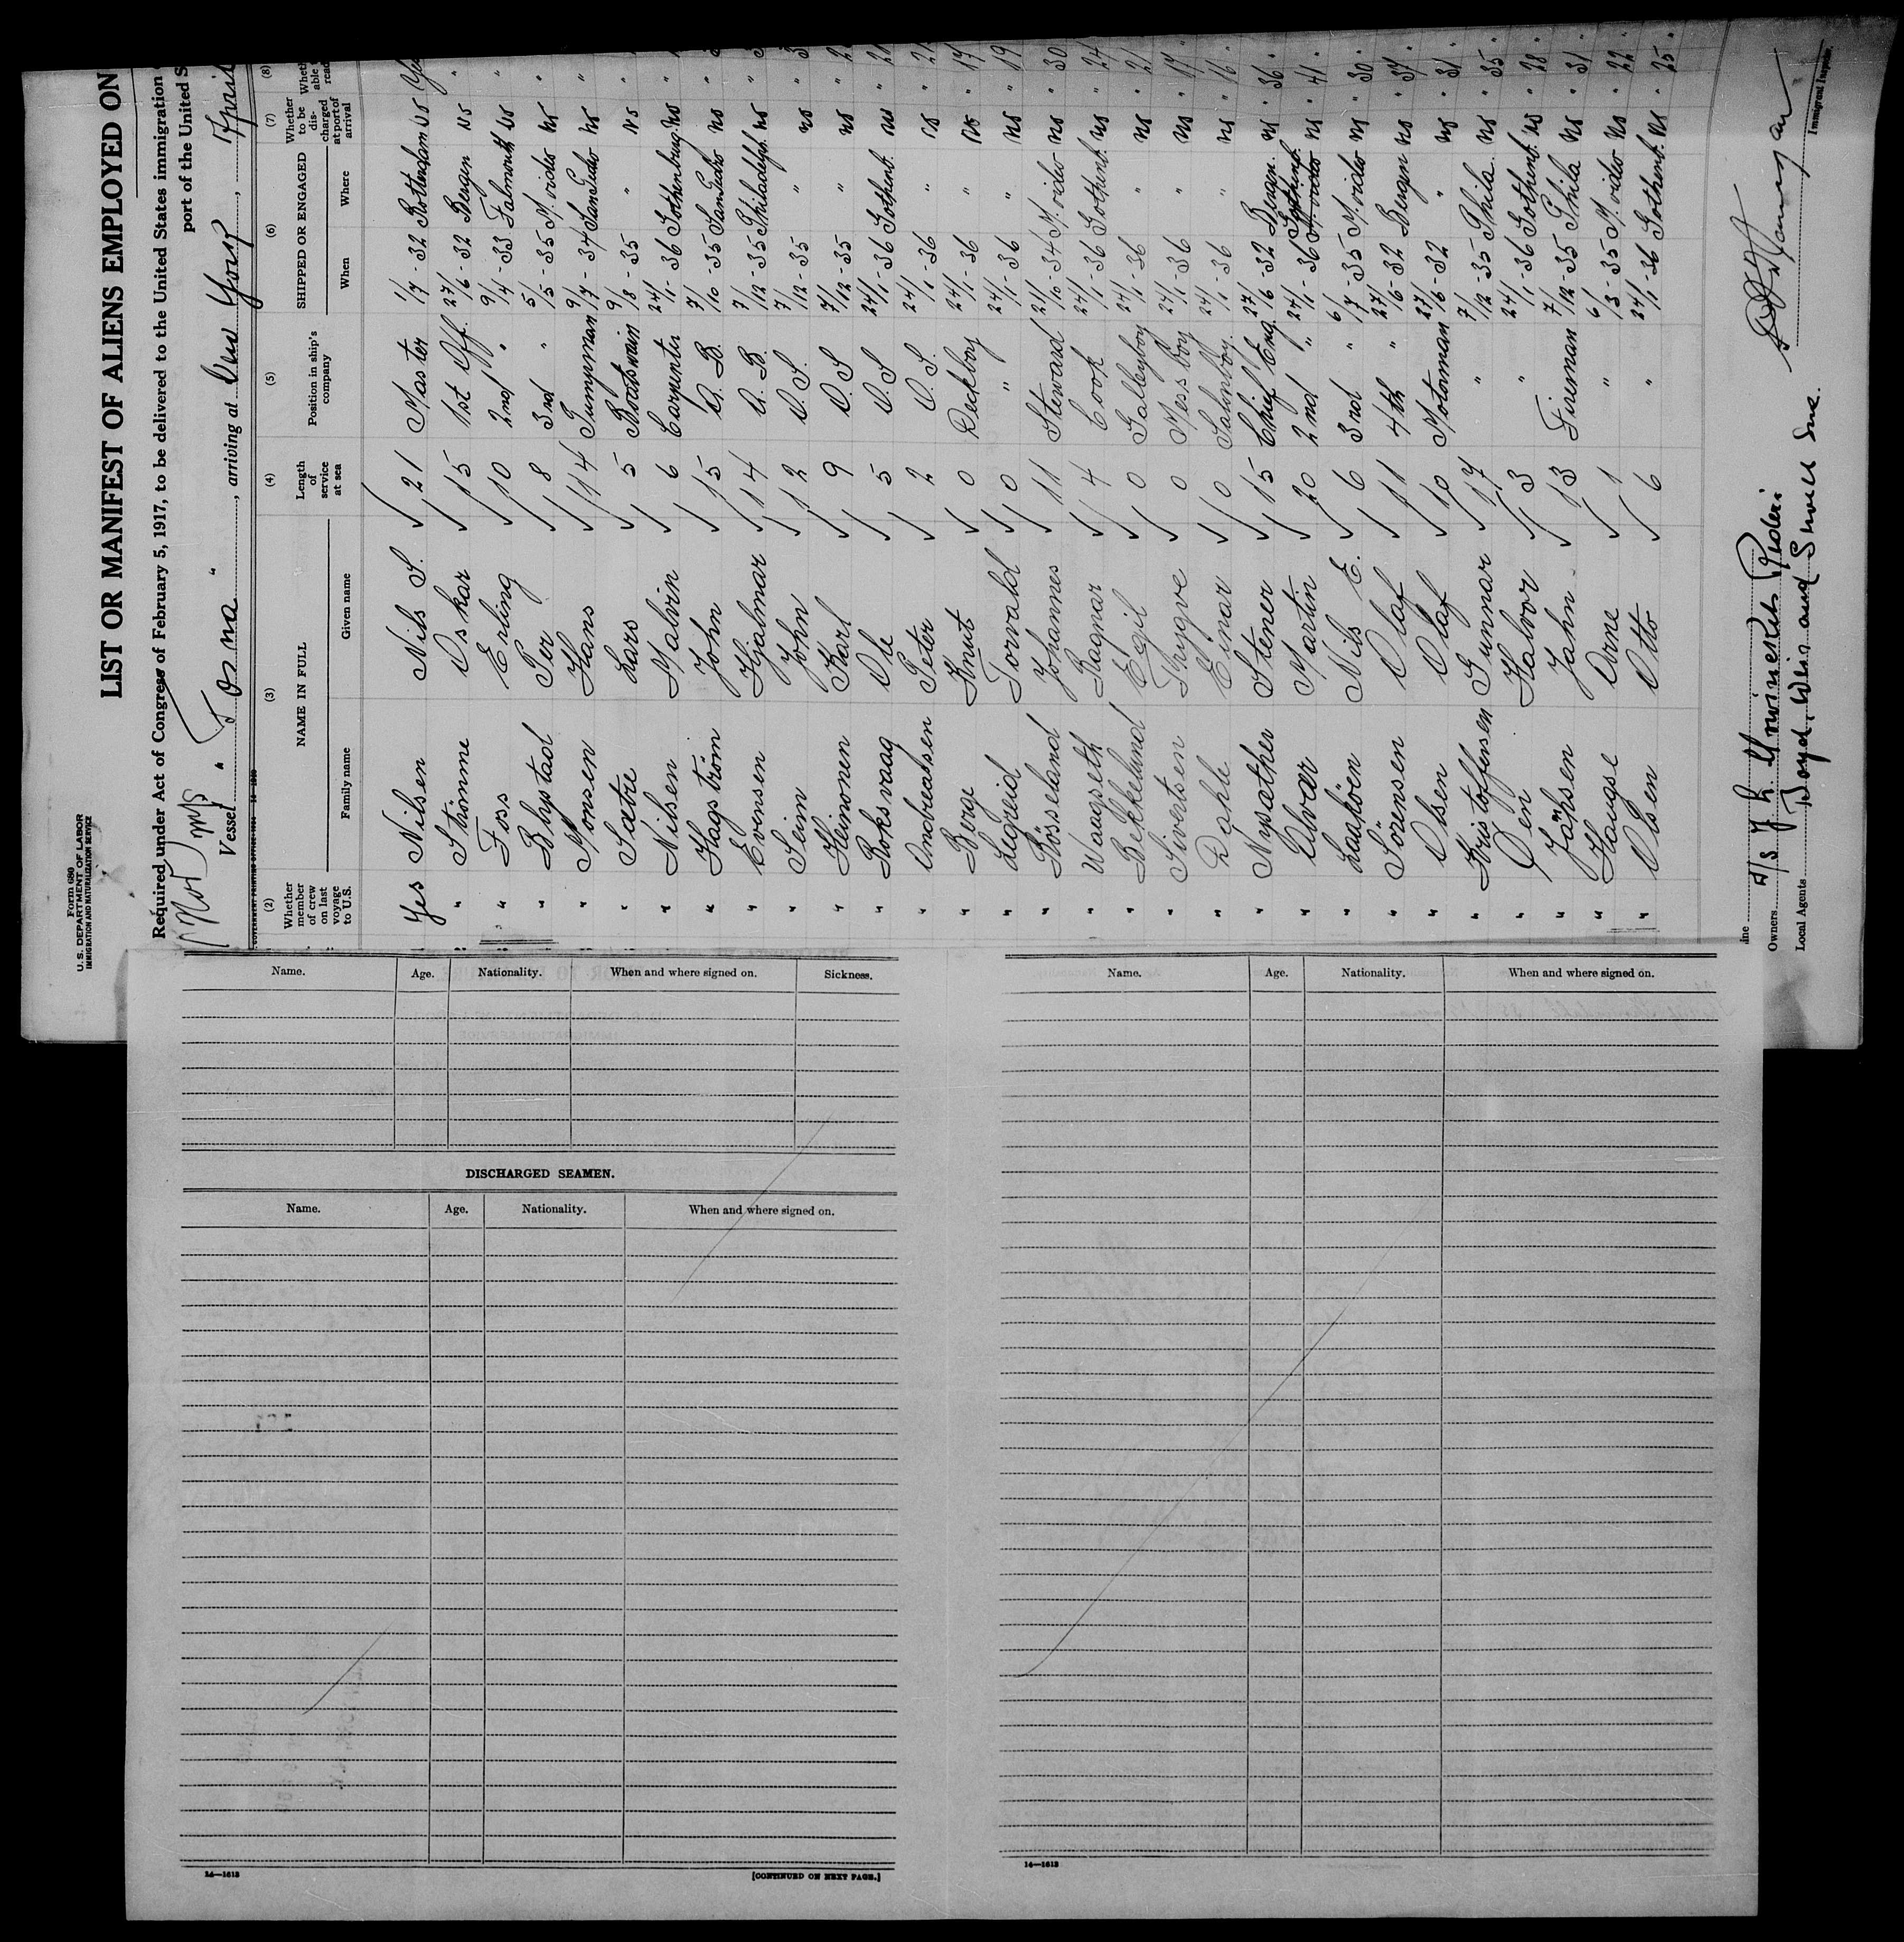 Form 680
U.S. DEPARTMENT OF LABOR
IMMIGRATION AND NATURALIZATION SERVICE
LIST OR MANIFEST OF ALIENS EMPLOYED ON
Required under Act of Congress of February 5, 1917, to be delivered to the United States immigration
port of the United S
(Nor) M/S
Vessel " Tosna ", arriving at New York, April
(2) (3) (4) (5) (6) (7) (8)
Whether member of crew on last voyage to U.S. NAME IN FULL Length of service at sea Position in ship's company SHIPPED OR ENGAGED Whether to be discharged at port of arrival
Family name Given name When Where
Yes Nilsen Nils S. 21 Master 1/7-32 Rotterdam No
" Strömme Oskar 15 1st Off. 27/6-32 Bergen No "
" Foss Erling 10 2nd " 9/4-33 Falmouth No "
" Blystad Per 8 3rd " 5/5-35 M. video No "
" Monsen Hans 14 Pumpman 9/7-34 San Pedro No "
" Sætre Lars 5 Boatswain 9/8-35 " No "
" Nilsen Malvin 6 Carpenter 24/1-36 Gothenburg No
" Hagström John 15 A. B. 7/10-35 San Pedro No "
" Evensen Hjalmar 14 A. B. 7/12-35 Philadelph. No "
" Seim John 12 O. S. 7/12-35 " No "
" Heinonen Karl 9 O. S. 7/12-35 " No "
" Roksvaag Ole 5 O. S. 24/1-36 Gothenb. No "
" Andreassen Peter 2 O. S. 24/1-36 " No " 21
" Berge Knut 0 Deckboy 24/1-36 " No " 17
" Legreid Torvald 0 " 24/1-36 " No " 19
" Rösseland Johannes 11 Steward 21/10-34 M. video No " 30
" Waagseth Ragnar 4 Cook 24/1-36 Gothenb. No " 24
" Bekkelund Egil 0 Galleyboy 24/1-36 " No " 21
" Sivertsen Trygve 0 Messboy 24/1-36 " No " 17
" Dahle Einar 0 Salonboy 24/1-36 " No " 16
" Nysæther Stener 15 Chief Eng. 27/6-32 Bergen No " 36
" Alvær Martin 20 2nd " 24/1-36 Gothenb. No " 41
" Laahöen Nils E. 6 3rd " 6/7-35 M. video No " 30
" Sörensen Olaf 11 4th " 27/6-32 Bergen No " 37
" Olsen Olaf 10 Motorman 27/6-32 " No " 31
" Kristoffersen Gunnar 17 " 7/12-35 Phila. No " 35
" Öen Halvor 3 " 24/1-36 Gothenb. No " 28
" Jahsen Jahn 13 Fireman 7/12-35 Phila No " 31
" Hauge Arne 1 " 6/3-35 M. video No " 22
" Olsen Otto 6 " 24/1-36 Gothenb. No " 25
Owners A/S J. L. Mowinckels Rederi
Local Agents Boyd, Weir and Sewell Inc.
Immigrant Inspector.
Name. Age. Nationality. When and where signed on. Sickness.
DISCHARGED SEAMEN.
Name. Age. Nationality. When and where signed on.
14—1613 [CONTINUED ON NEXT PAGE.]
Name. Age. Nationality. When and where signed on.
14—1613